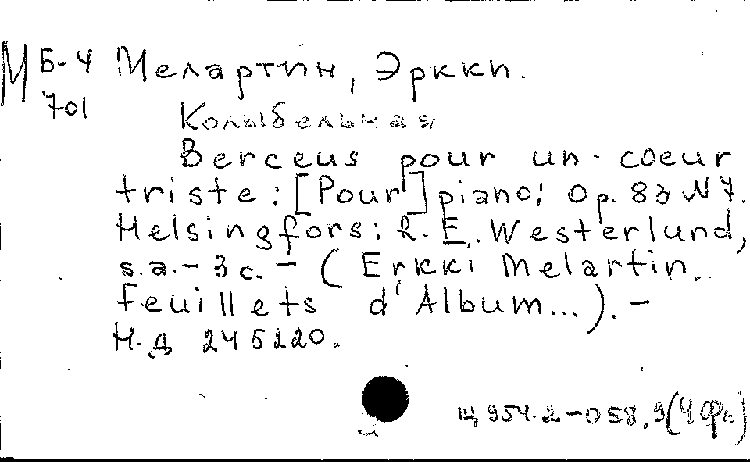 М Б-4 Мелартин, Эркки.
701
Колыбельная
Berceus pour un coeur
triste: [Pour] piano; Op. 83 N 7.
Helsingfors: R. E. Westerlund,
s.a.- 3 c. - (Erkki Melartin.
Feuillets d'Album...). -
Н.Д 245220.
Щ954.2-058.9(4Фи)